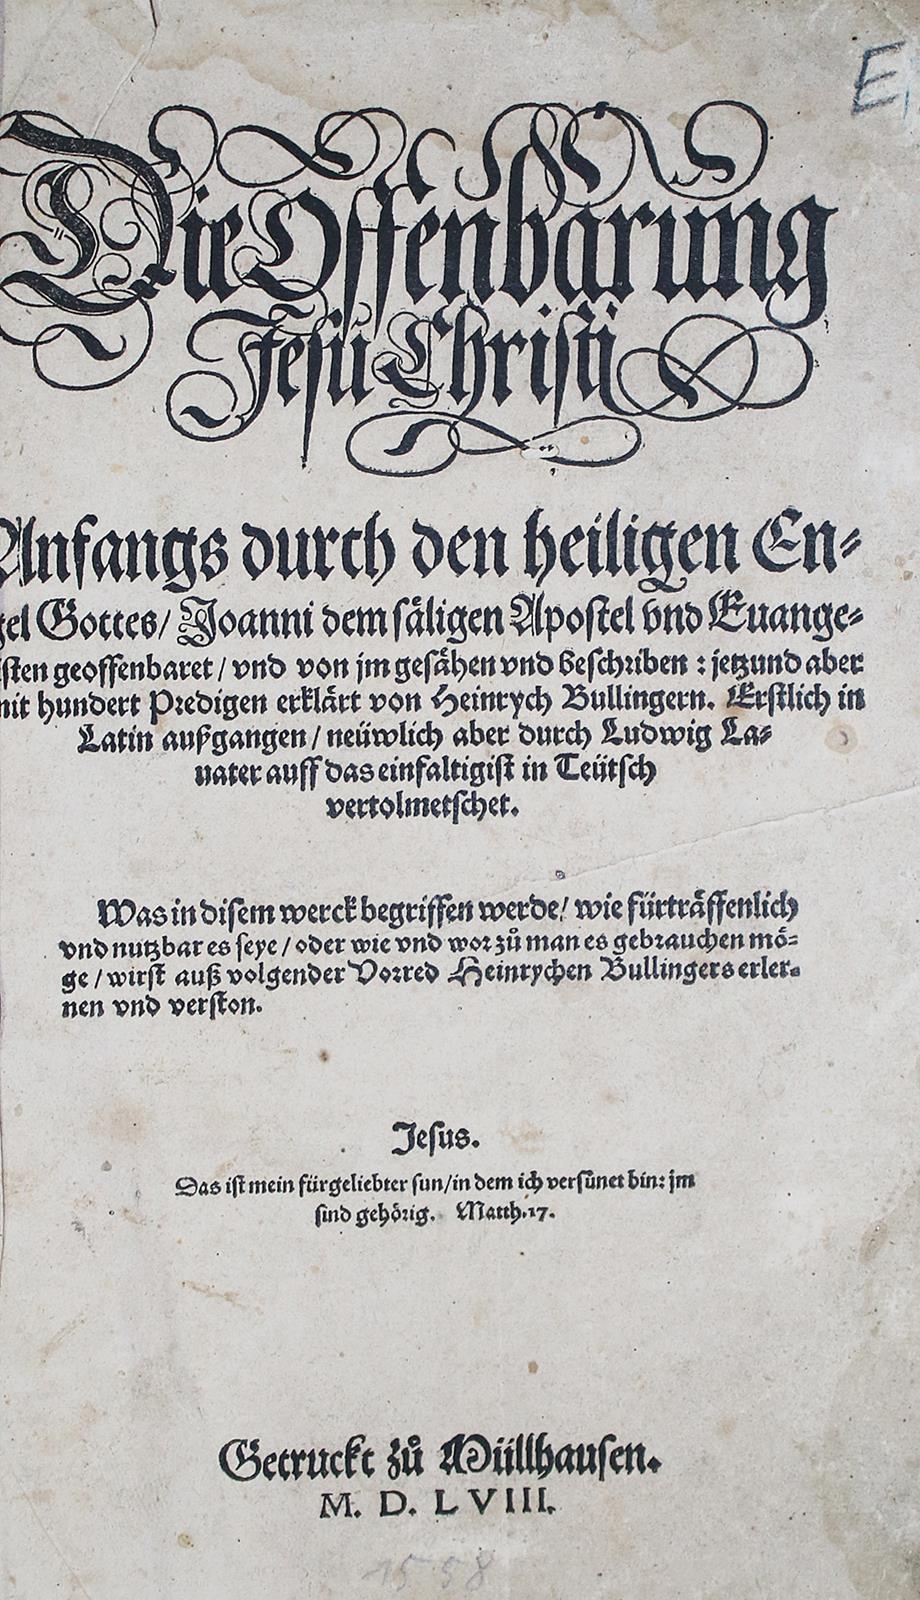 E
Die Offenbarung
Jesu Christi
Anfangs durch den heiligen En⸗
gel Gottes/ Joanni dem säligen Apostel vnd Euange⸗
isten geoffenbaret / vnd von jm gesähen vnd beschriben : jetzund aber
mit hundert Predigen erklärt von Heinrych Bullingern. Erstlich in
Latin außgangen / neüwlich aber durch Ludwig La⸗
uater auff das einfaltigist in Teütsch
vertolmetschet.
Was in disem werck begriffen werde/ wie fürträffenlich
vnd nutzbar es seye / oder wie vnd worzů man es gebrauchen mö⸗
ge / wirst auß volgender Vorred Heinrychen Bullingers erler⸗
nen vnd verston.
Jesus.
Das ist mein fürgeliebter sun/in dem ich versünet bin: jm
sind gehörig. Matth.17.
Getruckt zů Müllhausen.
M. D. L VIII.
1558